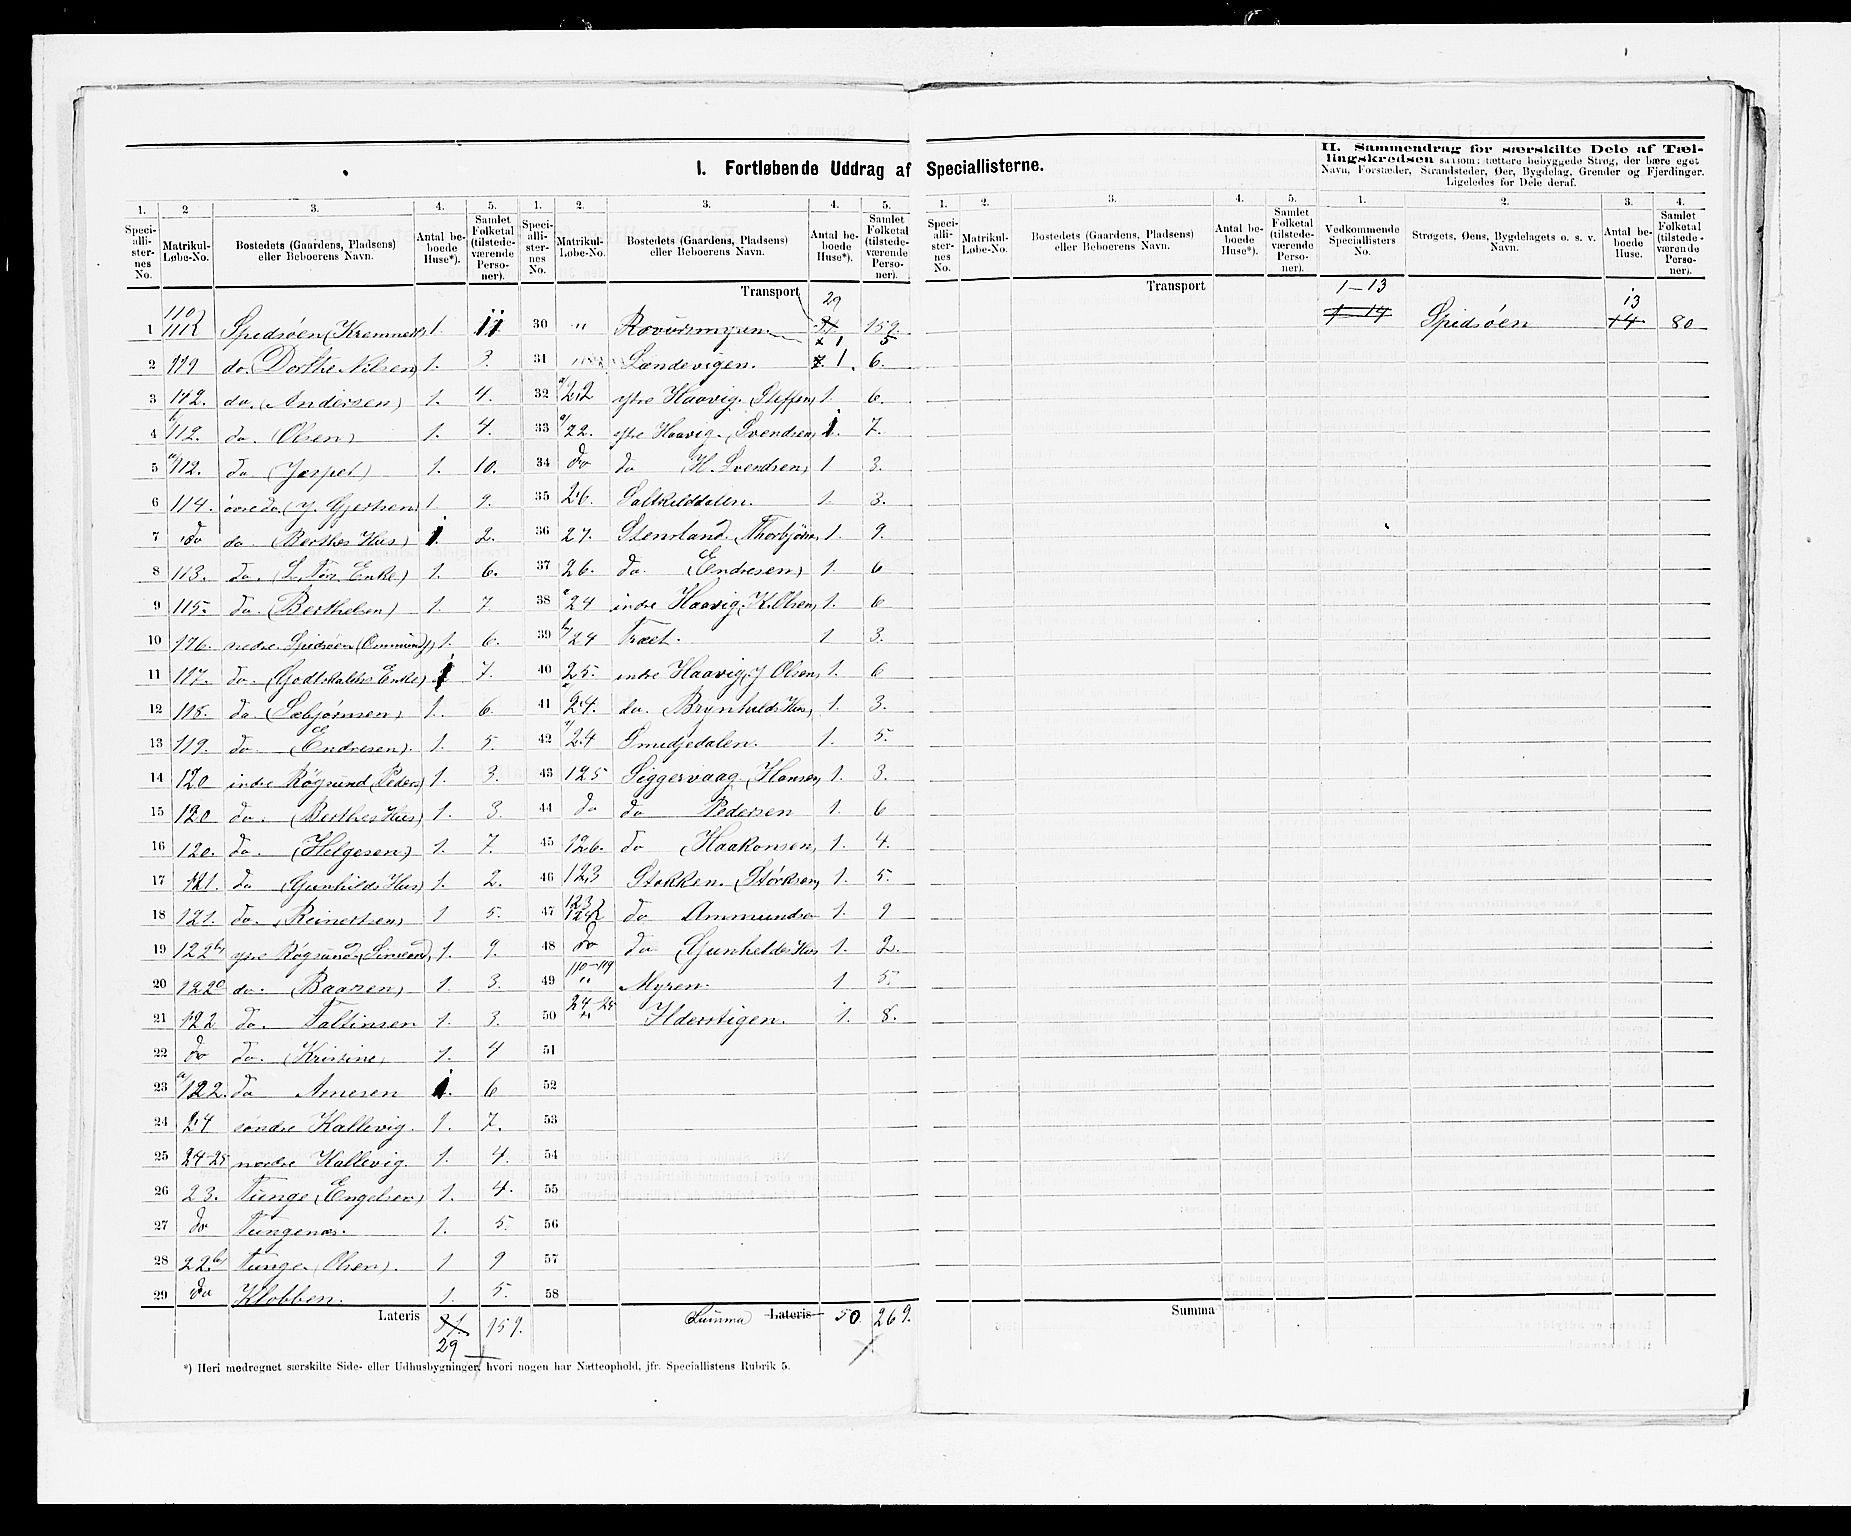 I. Fortløbende Uddrag af Speciallisterne.
II. Sammendrag for særskilte Dele af Tæl-
lingskredsen saasom: tættere bebyggede Strøg, der bære eget
Navn, Forstæder, Strandsteder, Øer, Bygdelag, Grender og Fjerdinger.
Ligeledes for Dele deraf.
1. 2 3. 4. 5. 1. 2. 3. 4. 5. 1. 2. 3. 4. 5. 1. 2. 3. 4.
Speciallisternes No. Matrikul-Løbe-No. Bostedets (Gaardens, Pladsens) eller Beboerens Navn. Antal beboede Huse*). Samlet Folketal (tilstedeværende Personer).
Speciallisternes No. Matrikul-Løbe-No. Bostedets (Gaardens, Pladsens) eller Beboerens Navn. Antal beboede Huse*). Samlet Folketal (tilstedeværende Personer).
Speciallisternes No. Matrikul-Løbe-No. Bostedets (Gaardens, Pladsens) eller Beboerens Navn. Antal beboede Huse*). Samlet Folketal (tilstedeværende Personer).
Vedkommende Speciallisters No. Strøgets, Øens, Bygdelagets o. s. v. Navn. Antal beboede Huse. Samlet Folketal (tilstedeværende Personer).
1 110 111 Spidsøen (Kremmer) 1. 11
2 119 do. Dorthe Nilsen) 1. 3.
3 112. do. (Andersen) 1. 4.
4 b/112. do. (Olsen) 1. 4.
5 a/112. do (Jesper) 1. 10.
6 114. øvre do (J. Gjertsen) 1. 9.
7 do do (Berthes Hus) 1. 2.
8 113. do. (S. Tørs Enke) 1. 6.
9 115. do. (Berthelsen) 1. 7.
10 116. nedre Spidsøen (Ommund) 1. 6.
11 117. do. (Godtskalks Enke) 1 7.
12 118. do. (Sæbjørnsen) 1. 6.
13 119. do. (Endresen). 1. 5.
14 120 indre Røgsund (Peders) 1. 3.
15 120 do. (Berthes Hus) 1. 3.
16 120. do. (Helgesen) 1. 7.
17 121. do (Gunhilds Hus) 1. 2.
18 121. do. (Reinertsen) 1 5.
19 122b ytre Røgsund (Simeon) 1. 9.
20 122c do. (Baarsen) 1. 3.
21 122 do. Faltinsen 1. 3.
22 do do. (Kristine) 1. 4
23 a/122. do Arnesen 1. 6
24 24 søndre Kallevig. 1. 7.
25 24-25 nordre Kallevig. 1. 4.
26 23. Tunge (Engelsen) 1. 4.
27 do Tungenæs. 1. 5.
28 22b Tunge (Olsen). 1 9
29 do Klobben. 1. 5.
Lateris 31. 159.
29
Transport 29 31 159.
30 " Rovursmyren 1 5
31 Sandevigen. 1. 6.
32 a/22 ytre Haavig. Steffens 1. 6.
33 a/22. ytre Haavig. Svendsen 1. 7.
34 do do H. Svendsen) 1 3.
35 26. Saltkelddalen. 1. 3.
36 27. Stensland. Thorbjørns 1. 9.
37 26. do. (Endresen) 1. 6
38 a/24 indre Haavig. K. Olsen) 1. 6
39 b/24 Træet. 1 3.
40 25. indre Haavig. J Olsen) 1. 6
41 24. do. Brynhilds Hus) 1. 3.
42 24 Smedjedalen. 1. 5.
43 125 Siggervaag. Hansen) 1. 3.
44 do do Pedersen 1. 6
45 126. do (Haakonsen) 1. 4.
46 123 Stokken. (Størksen) 1. 5.
47 123 124 do Ammundsen 1. 9
48 do do (Gunhilds Hus 1. 2.
49 110-119 " Myren. 1 5.
50 24-25 " Ilderstigen. 1. 8.
51
52
53
54
55
56
57
58
Summa Lateris 50. 269.
Transport
Summa
1-13 13
1-14 Spidsøen 14 80
*) Heri medregnet særskilte Side- eller Udhusbygninger, hvori nogen har Natteophold, jfr. Speciallistens Rubrik 5.